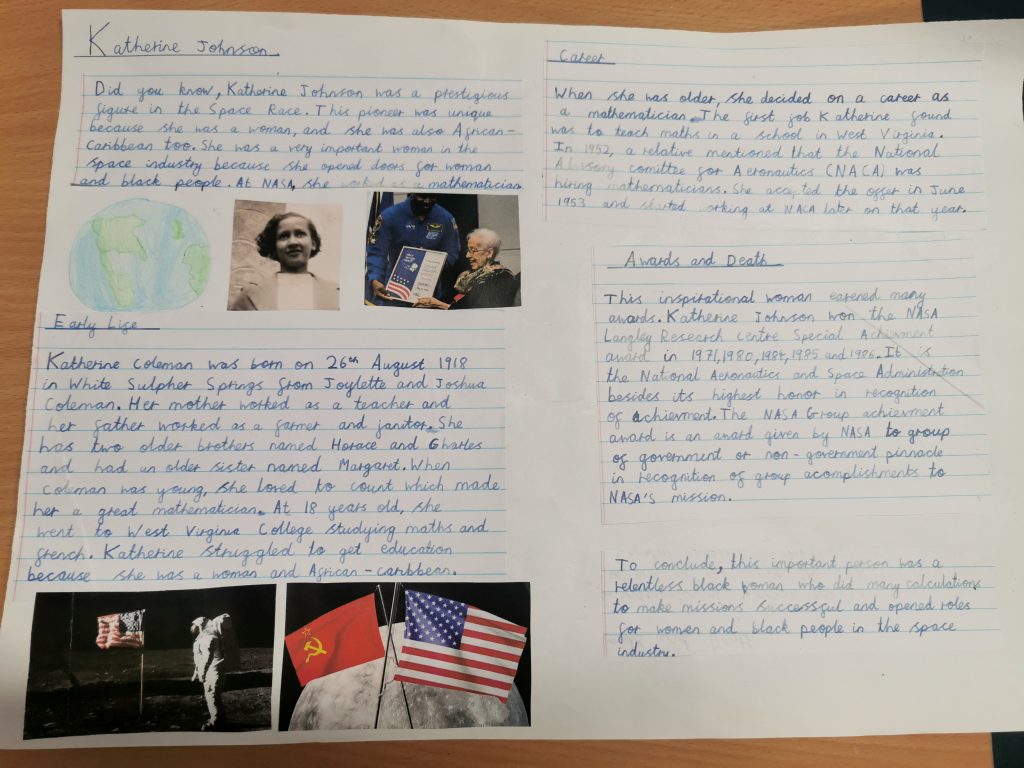 Katherine Johnson
Did you know, Katherine Johnson was a prestigious
figure in the Space Race. This pioneer was unique
because she was a woman, and she was also African-
Caribbean too. She was a very important woman in the
space industry because she opened doors for woman
and black people. At NASA, she worked as a mathematician
Early Life
Katherine Coleman was born on 26th August 1918
in White Sulpher Springs from Joylette and Joshua
Coleman. Her mother worked as a teacher and
her father worked as a farmer and janitor. She
has two older brothers named Horace and Charles
and had an older sister named Margaret. When
Coleman was young, she loved to count which made
her a great mathematician. At 18 years old, she
went to West Virginia College studying maths and
french. Katherine struggled to get education
because she was a woman and African-caribbean.
Career
When she was older, she decided on a career as
a mathematician. The first job Katherine found
was to teach maths in a school in West Virginia.
In 1952, a relative mentioned that the National
Advisory comittee for Aeronautics (NACA) was
hiring mathematicians. She accepted the offer in June
1953 and started working at NACA later on that year.
Awards and Death
This inspirational woman earened many
awards. Katherine Johnson won the NASA
Langley Research Centre Special Achievment
award in 1971, 1980, 1984, 1985 and 1986. It is
the National Aeronautics and Space Administration
besides its highest honor in recognition
of achievment. The NASA Group achievment
award is an award given by NASA to group
of government or non-government pinnacle
in recognition of group acomplishments to
NASA's mission.
To conclude, this important person was a
relentless black woman who did many calculations
to make missions successful and opened roles
for women and black people in the space
industry.